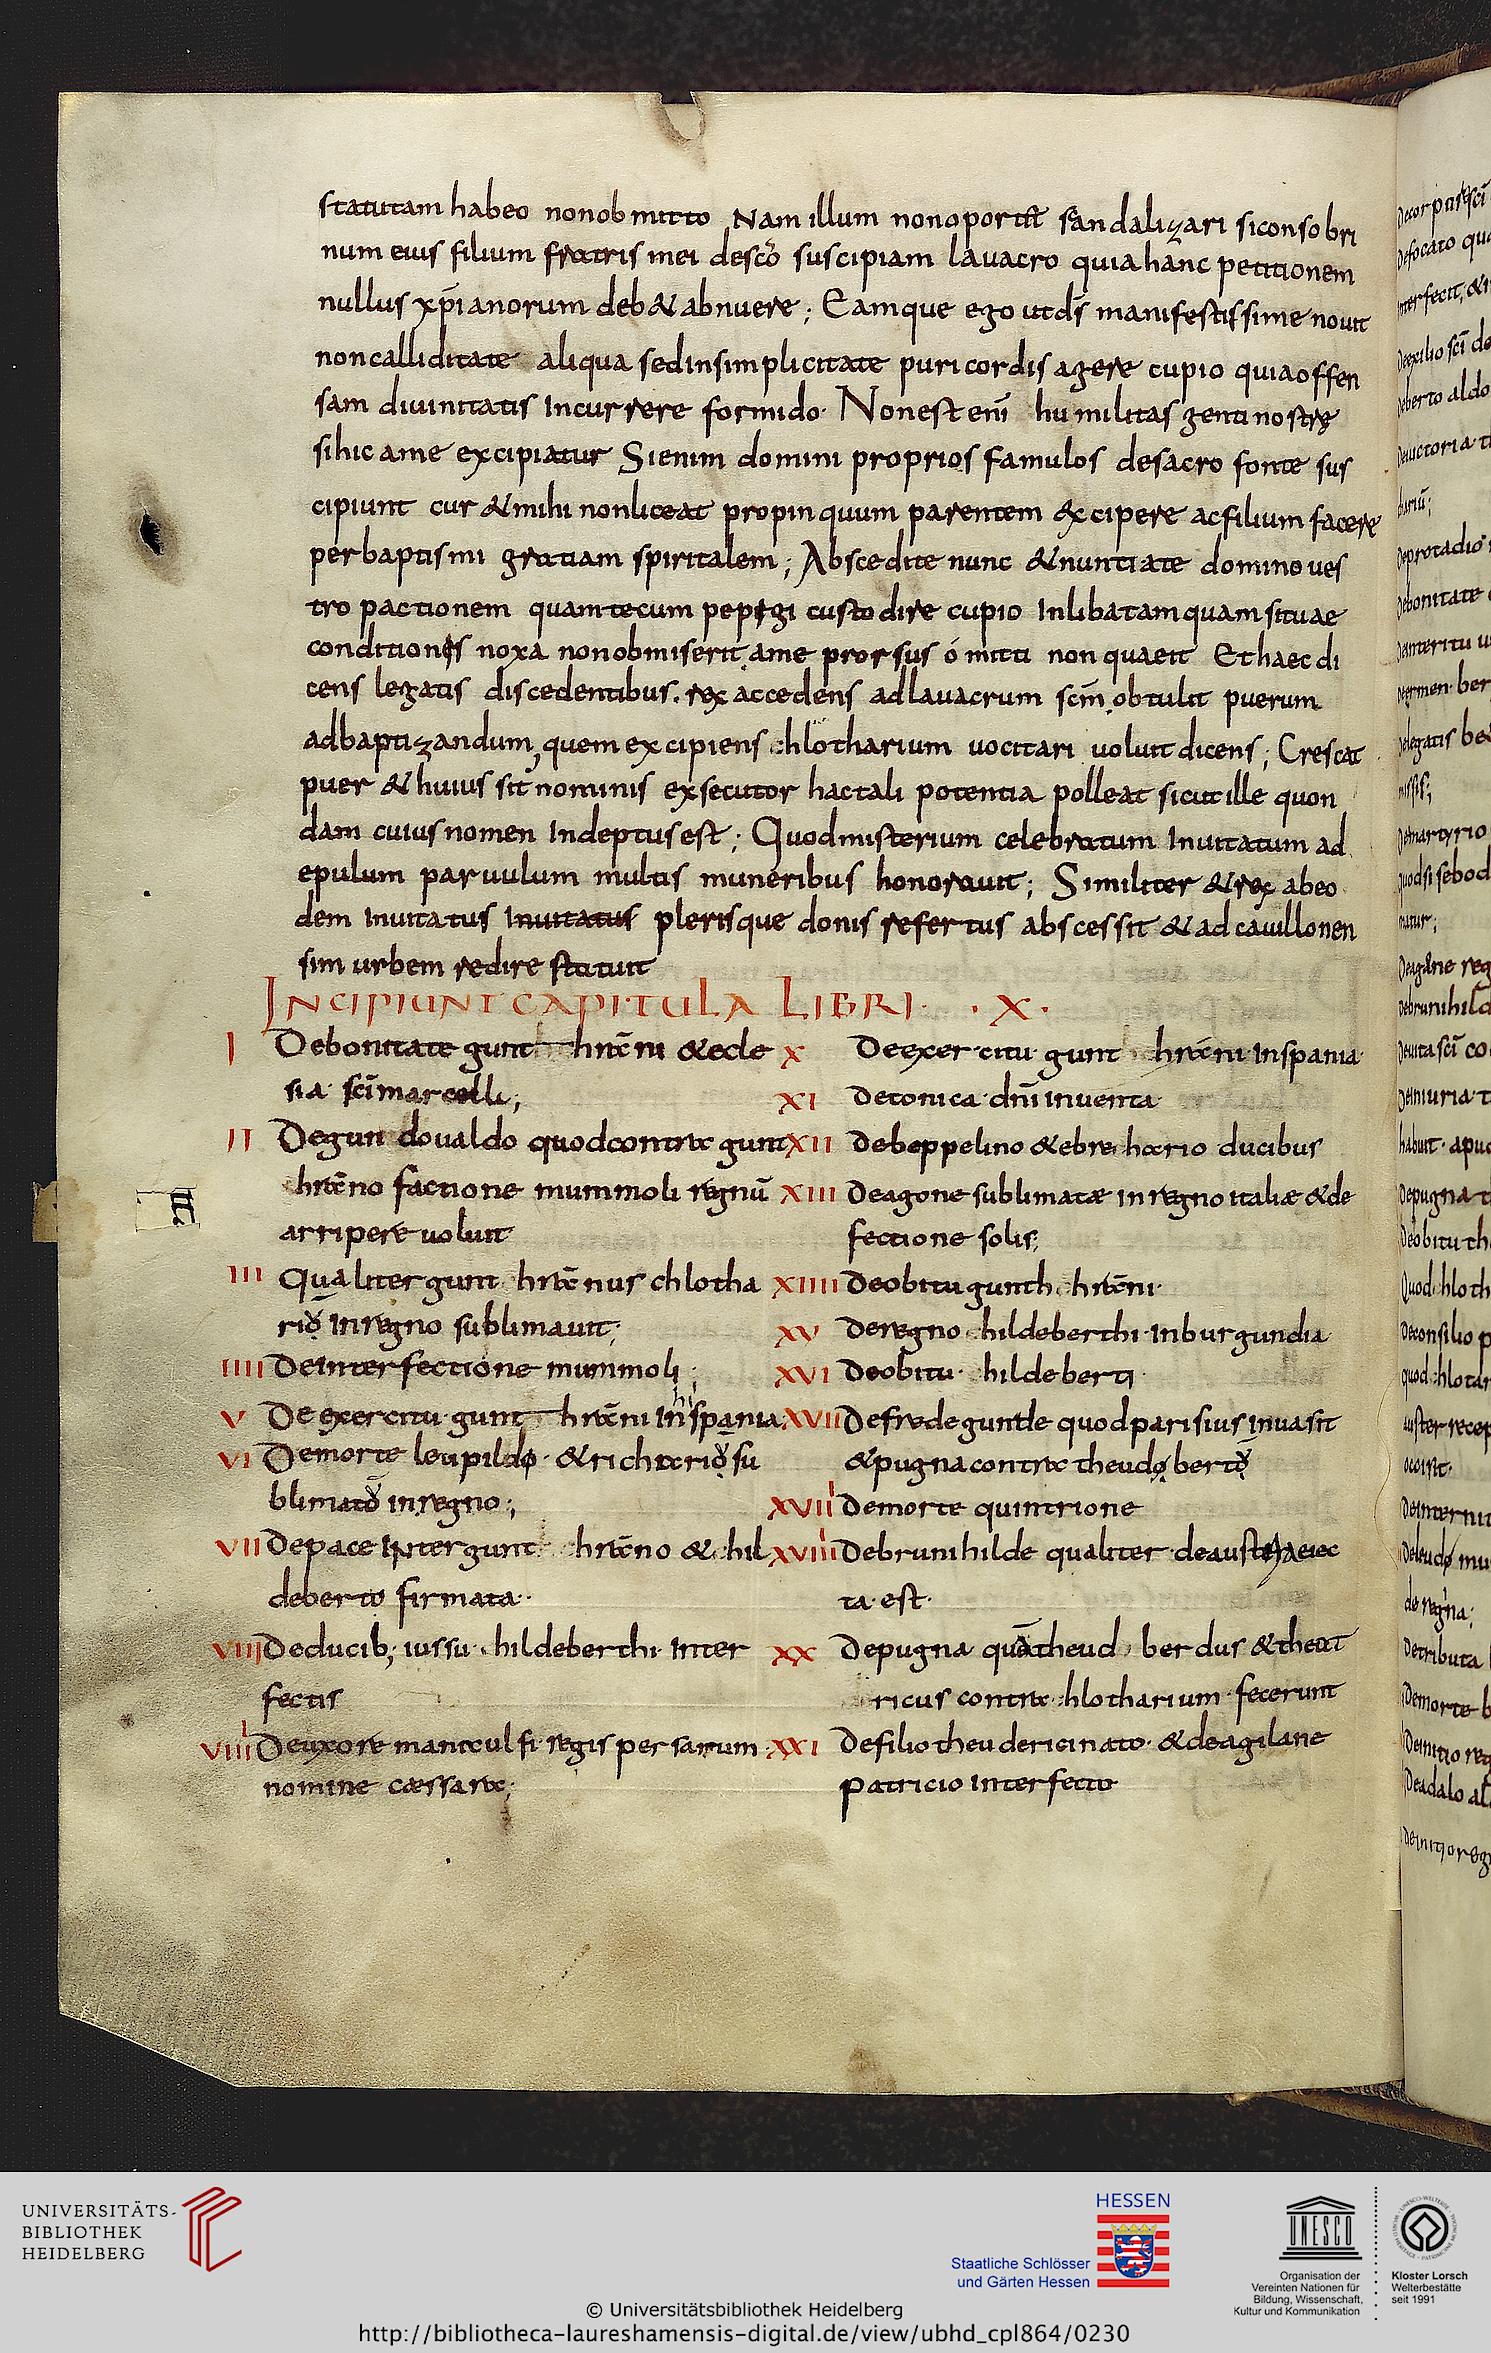 statutam habeo non obmitto Nam illum non oportet scandalizari si consobri
num eius filium fratris mei de sc̄o suscipiam lauacro quia hanc petitionem
nullus xp̄ianorum deb& abnuere; Eamque ego ut ds̄ manifestissime nouit
non calliditate aliqua sed in simplicitate puri cordis agere cupio quia offen
sam diuinitatis incurrere formido. Non est enī humilitas genti nostrę
si hic a me excipiatur Si enim domini proprios famulos de sacro fonte sus
cipiunt cur & mihi non liceat propinquum parentem excipere ac filium facere
per baptismi gratiam spiritalem; Abscedite nunc & nuntiate domino ues
tro pactionem quam tecum pepigi custodire cupio inlibatam quam si tuae
conditionis noxa non obmiserit a me prorsus omitti non quaeit Et haec di
cens legatis discedentibus. rex accedens ad lauacrum scm̄ obtulit puerum
ad baptizandum, quem excipiens chlotharium uocitari uoluit dicens; Crescat
puer & huius sit nominis exsecutor hac tali potentia polleat sicut ille quon
dam cuius nomen indeptus est; Quod misterium celebratum inuitatum ad
epulum paruulum multis muneribus honorauit; Similiter & rex ab eo
dem inuitatus inuitatus plerisque donis refertus abscessit & ad cauillonen
sim urbem redire statuit
INCIPIUNT CAPITULA LIBRI . . X .
I De bonitate gunt hrāmni & ecle
sia sc̄i marcelli;
II De gundoualdo quod contra gunt
hrāmno factione mummoli regnū
arripere uoluit
III Qualiter gunt hrāmnus chlotha
riō in regno sublimauit;
IIII De interfectione mummoli;
V De exercitu gunt hrāmni in hispania
VI De morte leupildo & richario su
blimato in regno;
VII De pace inter gunt hrāmno & chil
deberto firmata.
VIII De ducib; iussu childeberthi inter
fectis
VIIII De uxore mantculfi regis persarum
nomine cæssara;
X De exercitu gunt hrāmni in spania
XI De tonica dn̄i inuenta
XII De beppelino & ebrehario ducibus
XIII De agone sublimatæ in regno italiæ & de
fectione solis;
XIIII De obitu gunth hrāmni.
XV De regno childeberthi in burgundia
XVI De obitu childeberti
XVII De fredegunde quod parisius inuasit
& pugna contra theudoberto
XVIII De morte quintrione
XVIIII De brunihilde qualiter de auster eiec
ta est.
XX De pugna quā theud berdus & theut
ricus contra chlotharium fecerunt
XXI De filio theuderici nato & de agilane
patricio interfecto
UNIVERSITÄTS-
BIBLIOTHEK
HEIDELBERG
HESSEN
Staatliche Schlösser
und Gärten Hessen
UNESCO
Organisation der
Vereinten Nationen für
Bildung, Wissenschaft,
Kultur und Kommunikation
Kloster Lorsch
Welterbestätte
seit 1991
© Universitätsbibliothek Heidelberg
http://bibliotheca-laureshamensis-digital.de/view/ubhd_cpl864/0230